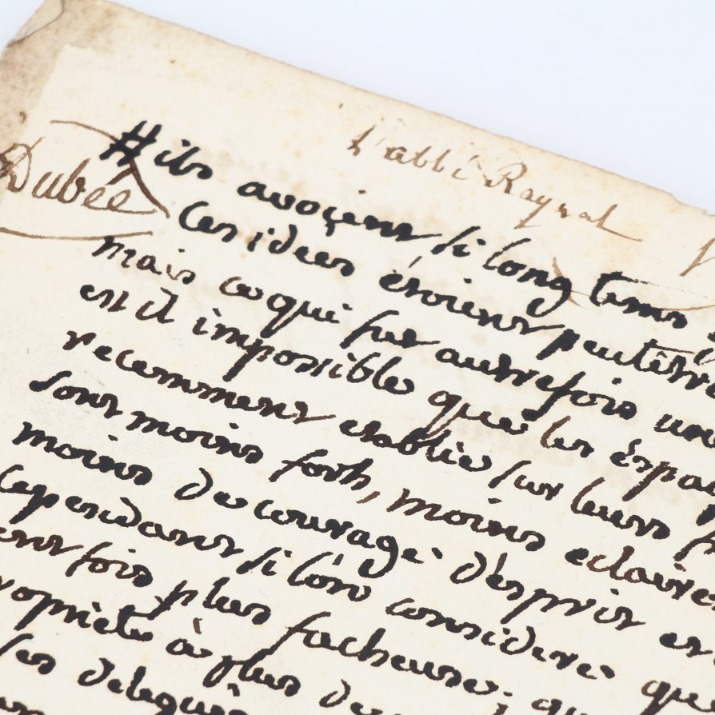 L'abbé Raynal
Dubée
# ils avoient si long tems
Ces idées étoient peutêtre
mais ce qui fut autrefois un
est il impossible que les éspa
recemment etablie sur leurs f
sont moins forts, moins eclairé
moins de courage d'esprit et
cependant si l'on considere que
ent fois plus facheuse; qu
ropriete à plus de
les delegué